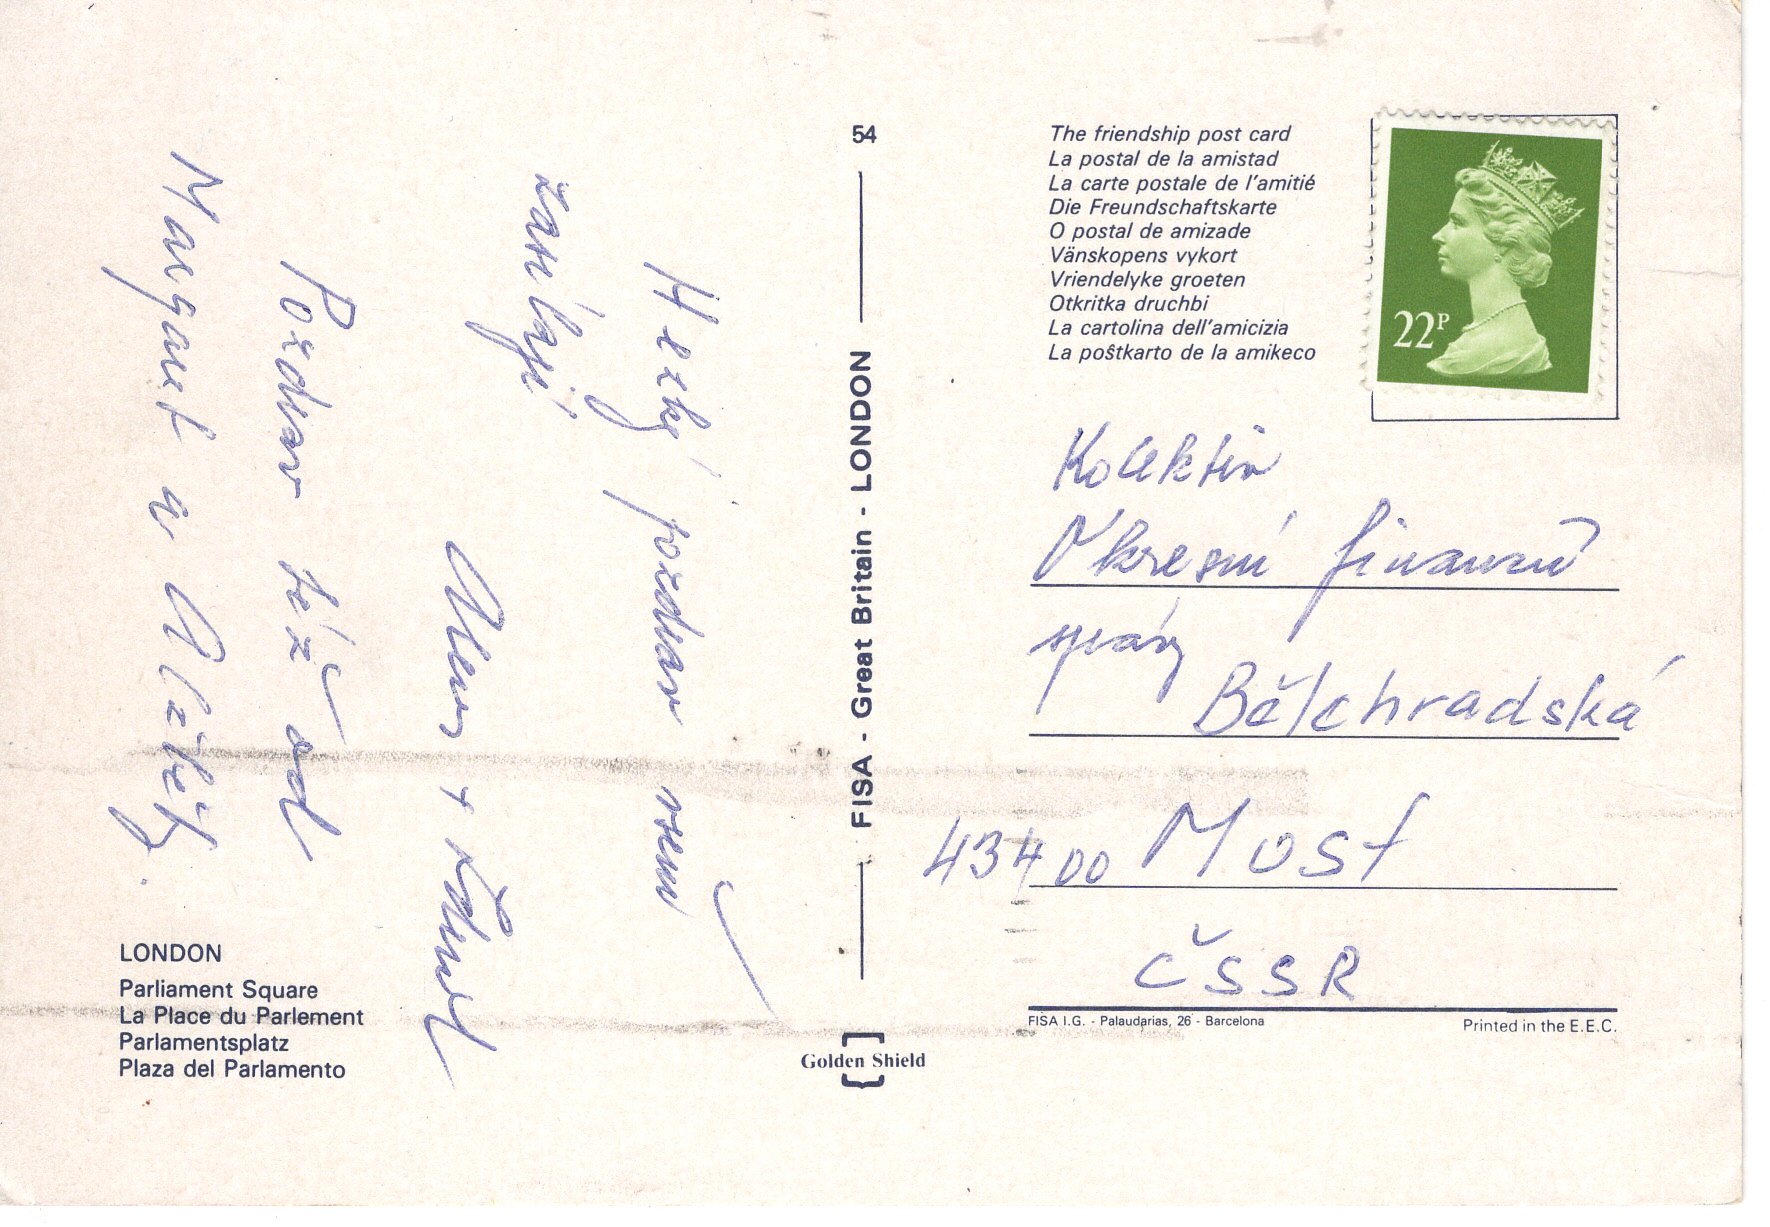 Hezký pozdrav všem
zasílají
Pozdrav též od
Margaret a Alžběty.
LONDON
Parliament Square
La Place du Parlement
Parlamentsplatz
Plaza del Parlamento
54
FISA - Great Britain - LONDON
Golden Shield
The friendship post card
La postal de la amistad
La carte postale de l'amitié
Die Freundschaftskarte
O postal de amizade
Vänskopens vykort
Vriendelyke groeten
Otkritka druchbi
La cartolina dell'amicizia
La poŝtkarto de la amikeco
22P
Kolektiv
Okresní finanční
správy
Bělehradská
434 00 Most
ČSSR
FISA I.G. - Palaudarias, 26 - Barcelona
Printed in the E.E.C.